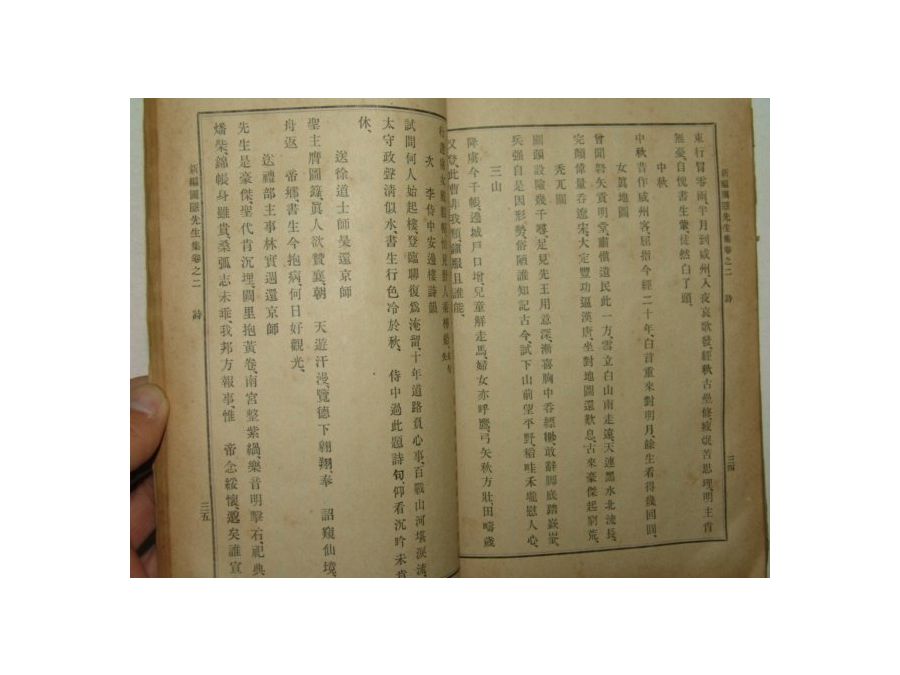 新編圃隱先生集卷之二 詩
三四
東行冒零雨、半月到咸州、入夜哀歌發、經秋古壘修、疲氓苦思理、明主肯
無憂、自愧書生輩、徒然白了頭、
中秋
中秋昔作咸州客、屈指今經二十年、白首重來對明月、餘生看得幾回圓、
女眞地圖
曾聞楛矢貢明堂、肅愼遺民此一方、雪立白山南走遠、天連黑水北流長、
完顏偉量呑遼宋、大定豐功逼漢唐、坐對地圖還歎息、古來豪傑起窮荒、
禿兀圖
關頭設險幾千尋、足見先王用意深、漸喜胸中呑 敢辭脚底踏嶔崟、
兵强自是因形勢、俗陋誰知記古今、試下山前望平野、稻畦禾壠慰人心、
三山
降虜今千帳、邊城戶口增、兒童解走馬、婦女亦呼鷹、弓矢秋方壯、田疇歲
又登、此曹非我類、 服且誰能、
次 李侍中安邊樓詩韻
試問何人始起樓、登臨聊復爲淹留、十年道路負心事、百戰山河堪淚流、
太守政聲淸似水、書生行色冷於秋、 侍中過此題詩句、仰看沉吟未肯
休、
送徐道士師昊還京師
聖主膺圖籙、眞人欲贊襄、朝 天遊汗漫、覽德下翺翔、奉 詔窺仙境、
舟返 帝鄕、書生今抱病、何日好觀光、
送禮部主事林實還京師
先生是豪傑、聖代肯沉埋、閭里抱黃卷、南宮整紫 樂音明擊石、祀典
燔柴、錦帳身雖貴、桑弧志未乖、我邦方報事、惟 帝念綏懷、邈矣誰宣
新編圃隱先生集卷之二 詩
三五